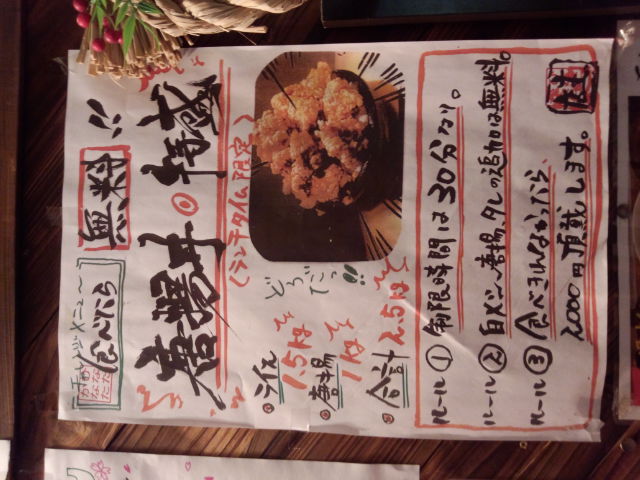 〜チャレンジメニュー〜
食べたら
無料!!
唐揚丼の特盛
(ランチタイム限定)
どうだっ!!
ライス
1.5kg
唐揚
1kg
合計 2.5kg
ルール① 制限時間は30分なり。
ルール② 白メシ、唐揚、タレの追加は無料。
ルール③ 食べきれなかったら、
2,000円頂戴します。